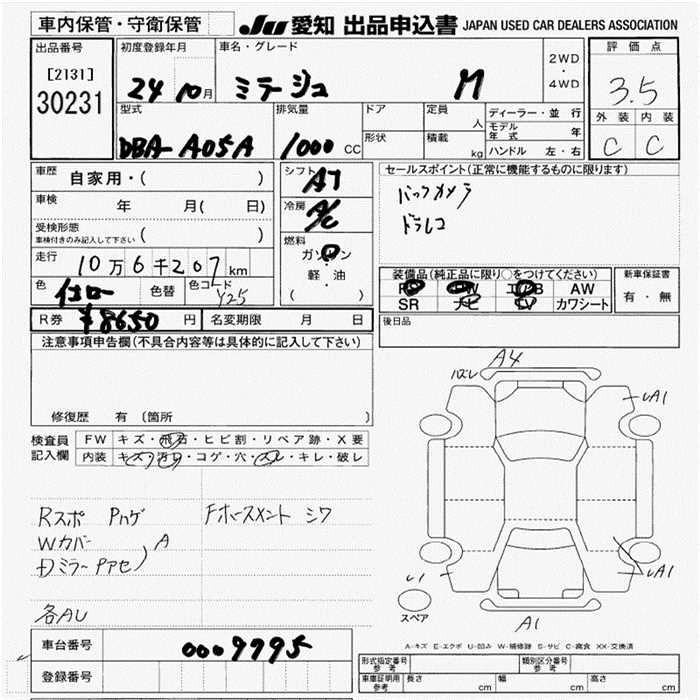 車内保管・守衛保管
JU 愛知 出品申込書 JAPAN USED CAR DEALERS ASSOCIATION
出品番号
[2131]
30231
初度登録年月
24 10月
車名・グレード
ミラージュ M
2WD
・
4WD
評価点
3.5
外装 内装
C C
型式
DBA-A05A
排気量
1000 CC
ドア
形状
定員
人
積載
kg
ディーラー・並行
モデル年式 年
ハンドル 左・右
車歴 自家用・( )
車検 年 月( 日)
受検形態
車検付きのみ記入して下さい ( )
走行 10万6千207km
色 イエロー 色替 色コード Y25
シフト AT
冷房 A/C
燃料
ガソリン
軽・油
( )
セールスポイント(正常に機能するものに限ります)
バックカメラ
ドラレコ
装備品(純正品に限り○をつけてください)
PS PW エアB AW
SR ナビ TV カワシート
新車保証書
有・無
R券 ¥8650円 名変期限 月 日
後日品
注意事項申告欄(不具合内容等は具体的に記入して下さい)
修復歴 有 〔箇所 〕
検査員
記入欄
FW キズ・飛石・ヒビ割・リペア跡・X要
内装 キズ・汚れ・コゲ・穴・スレ・キレ・破レ
Rスポ Pハゲ
Wカバー
ミラーPアセ
A
Fホースメント シワ
各AU
A4
ハズレ
A1
A1
スペア
A1
A-キズ E-エクボ U-凹み W-補修跡 S-サビ C-腐食 XX-交換済
車台番号 0009795
登録番号
形式指定番号 参考
類別区分番号 参考
車庫証明用 参考 長さ cm 幅 cm 高さ cm